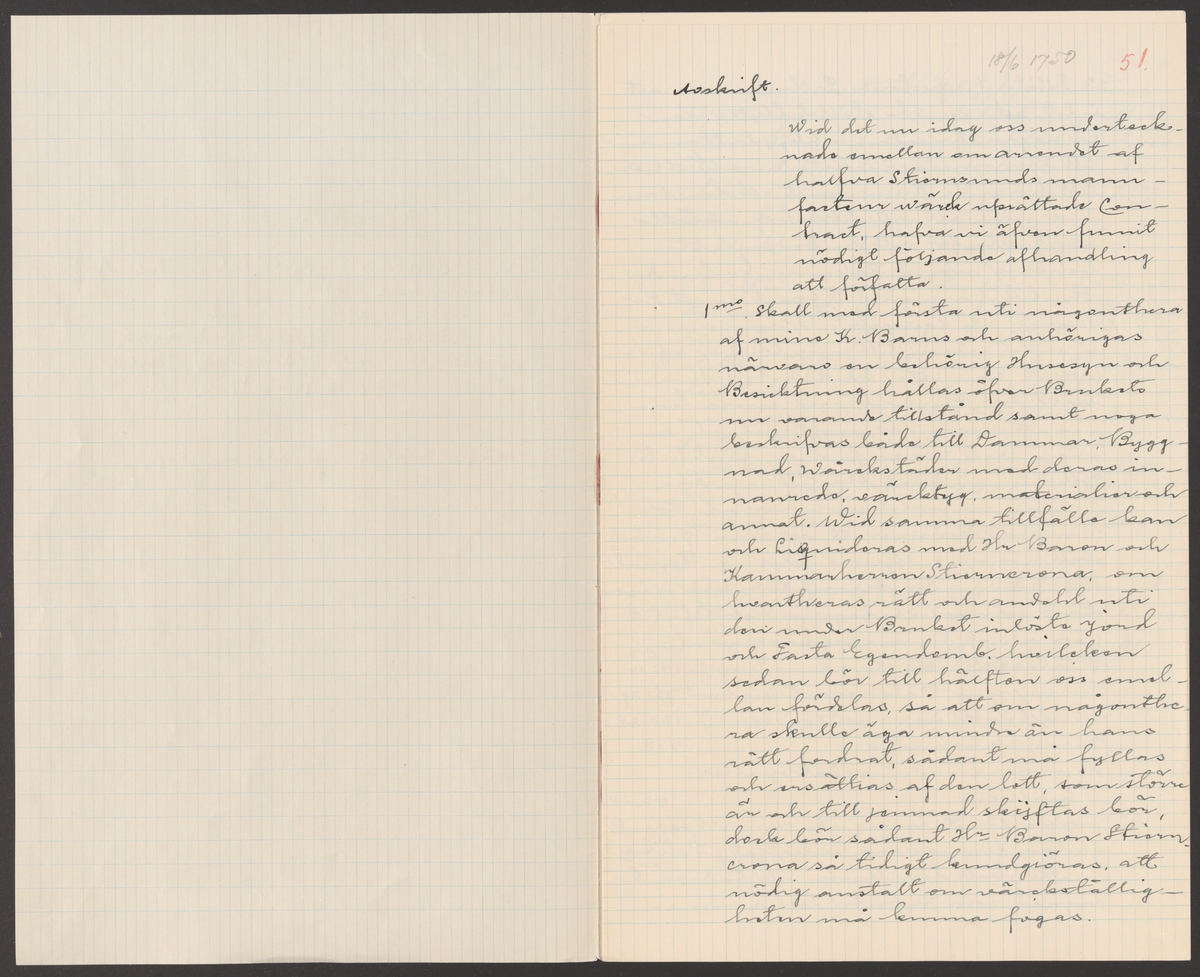 18/6 1750
51.
Avskrift.
Wid det nu idag oss underteck-
nade emellan om arrendet af
halfva Stiernsunds manu-
facteur wärck uprättade Con-
tract, hafva vi äfven funnit
nödigt följande afhandling
att författa.
1mo. Skall med första uti någonthera
af mine K. Barns och anhörigas
närvaro en behörig Husesyn och
Besicktning hållas öfver Brukets
nu varande tillstånd samt noga
beskrifvas både till Dammar, Bygg-
nad, Wärckstäder med deras in-
nanrede, värcktyg, materialier och
annat. Wid samma tillfälle kan
och Liquideras med Hr Baron och
Kammarherren Stierncrona, om
hvartheras rätt och andehl uti
den under Bruket inlöste jord
och Fasta Egendomb. hvilcken
sedan bör till hälften oss emel-
lan fördelas, så att om någonthe-
ra skulle äga mindre än hans
rätt fordrat, sådant må fyllas
och ersättias af den lott, som större
är och till jemnad skijftas bör,
dock bör sådant Hr Baron Stiern-
crona så tidigt kundgiöras, att
nödig anstalt om värckställig-
heten må kunna fogas.